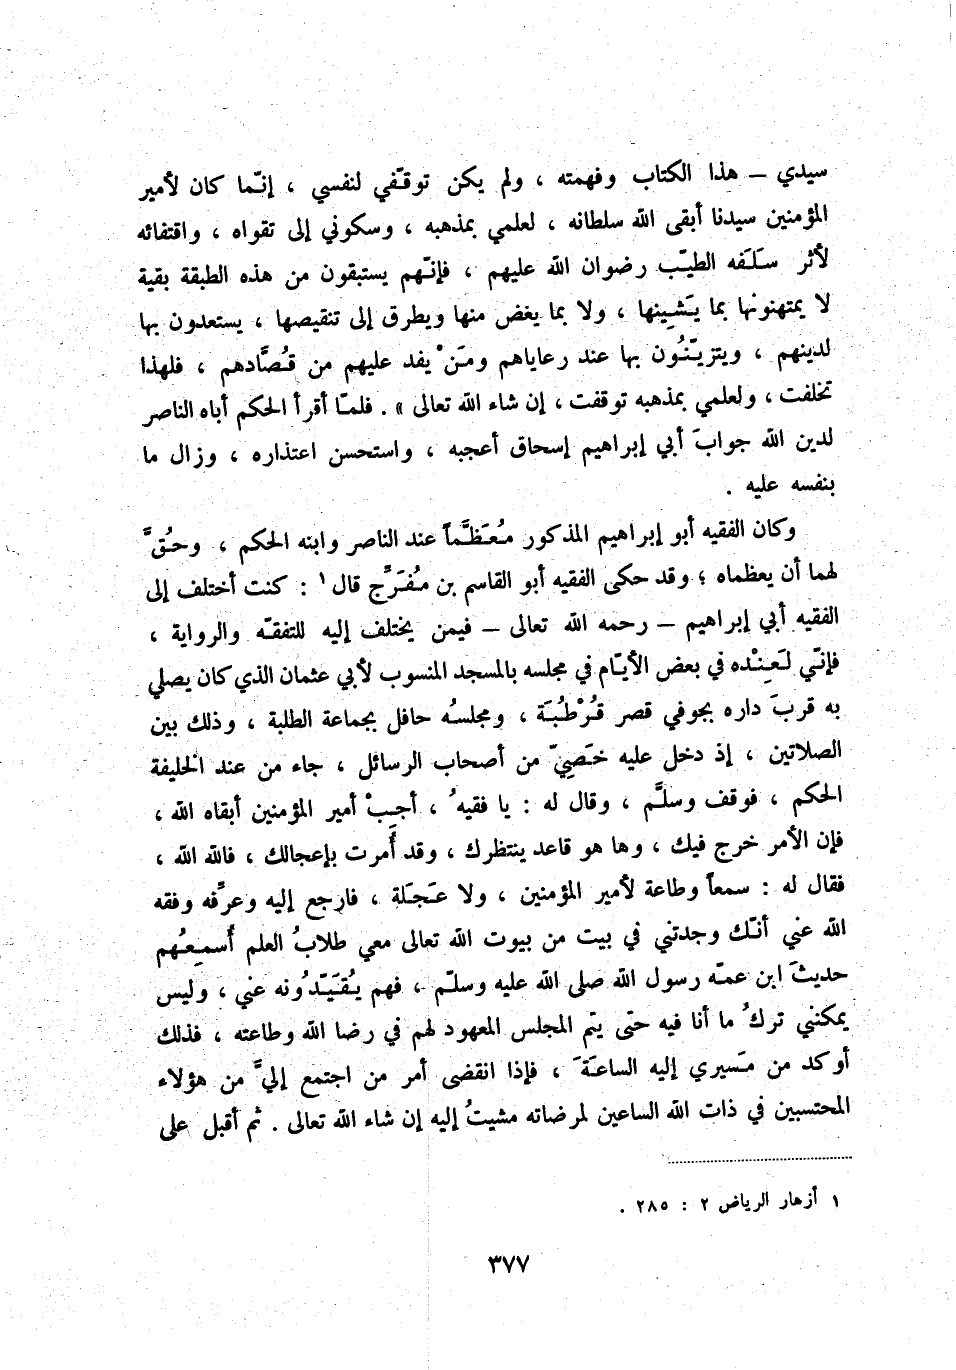 سيدي – هذا الكتاب وفهمته ، ولم يكن توقّفي لنفسي ، إنّما كان لأمير
المؤمنين سيدنا أبقى الله سلطانه ، لعلمي بمذهبه ، وسكوني إلى تقواه ، واقتفائه
لأثر سَلَفه الطيّب رضوان الله عليهم ، فإنّهم يستبقون من هذه الطبقة بقية
لا يمتهنونها بما يَشِينها ، ولا بما يغض منها ويطرق إلى تنقيصها ، يستعدون بها
لدينهم ، ويتزيّنُون بها عند رعاياهم ومَنْ يفد عليهم من قُصَّادهم ، فلهذا
تخلفت ، ولعلمي بمذهبه توقفت ، إن شاء الله تعالى » . فلمّا أقرأ الحكم أباه الناصر
لدين الله جوابَ أبي إبراهيم إسحاق أعجبه ، واستحسن اعتذاره ، وزال ما
بنفسه عليه .
وكان الفقيه أبو إبراهيم المذكور مُعَظَّماً عند الناصر وابنه الحكم ، وحُقَّ
لهما أن يعظماه ؛ وقد حكى الفقيه أبو القاسم بن مُفَرَّج قال ١ : كنت أختلف إلى
الفقيه أبي إبراهيم – رحمه الله تعالى – فيمن يختلف إليه للتفقّه والرواية ،
فإنّي لَعِنْده في بعض الأيّام في مجلسه بالمسجد المنسوب لأبي عثمان الذي كان يصلي
به قربَ داره بجوفي قصر قُرْطُبَة ، ومجلسُه حافل بجماعة الطلبة ، وذلك بين
الصلاتين ، إذ دخل عليه خَصِيّ من أصحاب الرسائل ، جاء من عند الخليفة
الحكم ، فوقف وسلَّم ، وقال له : يا فقيهُ ، أجِبْ أمير المؤمنين أبقاه الله ،
فإن الأمر خرج فيك ، وها هو قاعد ينتظرك ، وقد أُمرت بإعجالك ، فالله الله ،
فقال له : سمعاً وطاعة لأمير المؤمنين ، ولا عَجَلة ، فارجع إليه وعرِّفه وفقه
الله عني أنّك وجدتني في بيت من بيوت الله تعالى معي طلابُ العلم أُسمِعُهم
حديثَ ابن عمّه رسول الله صلى الله عليه وسلّم ، فهم يُقَيّدُونه عني ، وليس
يمكنني تركُ ما أنا فيه حتى يتم المجلس المعهود لهم في رضا الله وطاعته ، فذلك
أوكد من مَسيري إليه الساعَةَ ، فإذا انقضى أمر من اجتمع إليَّ من هؤلاء
المحتسبين في ذات الله الساعين لمرضاته مشيتُ إليه إن شاء الله تعالى . ثم أقبل على
١ أزهار الرياض ٢ : ٢٨٥ .
٣٧٧